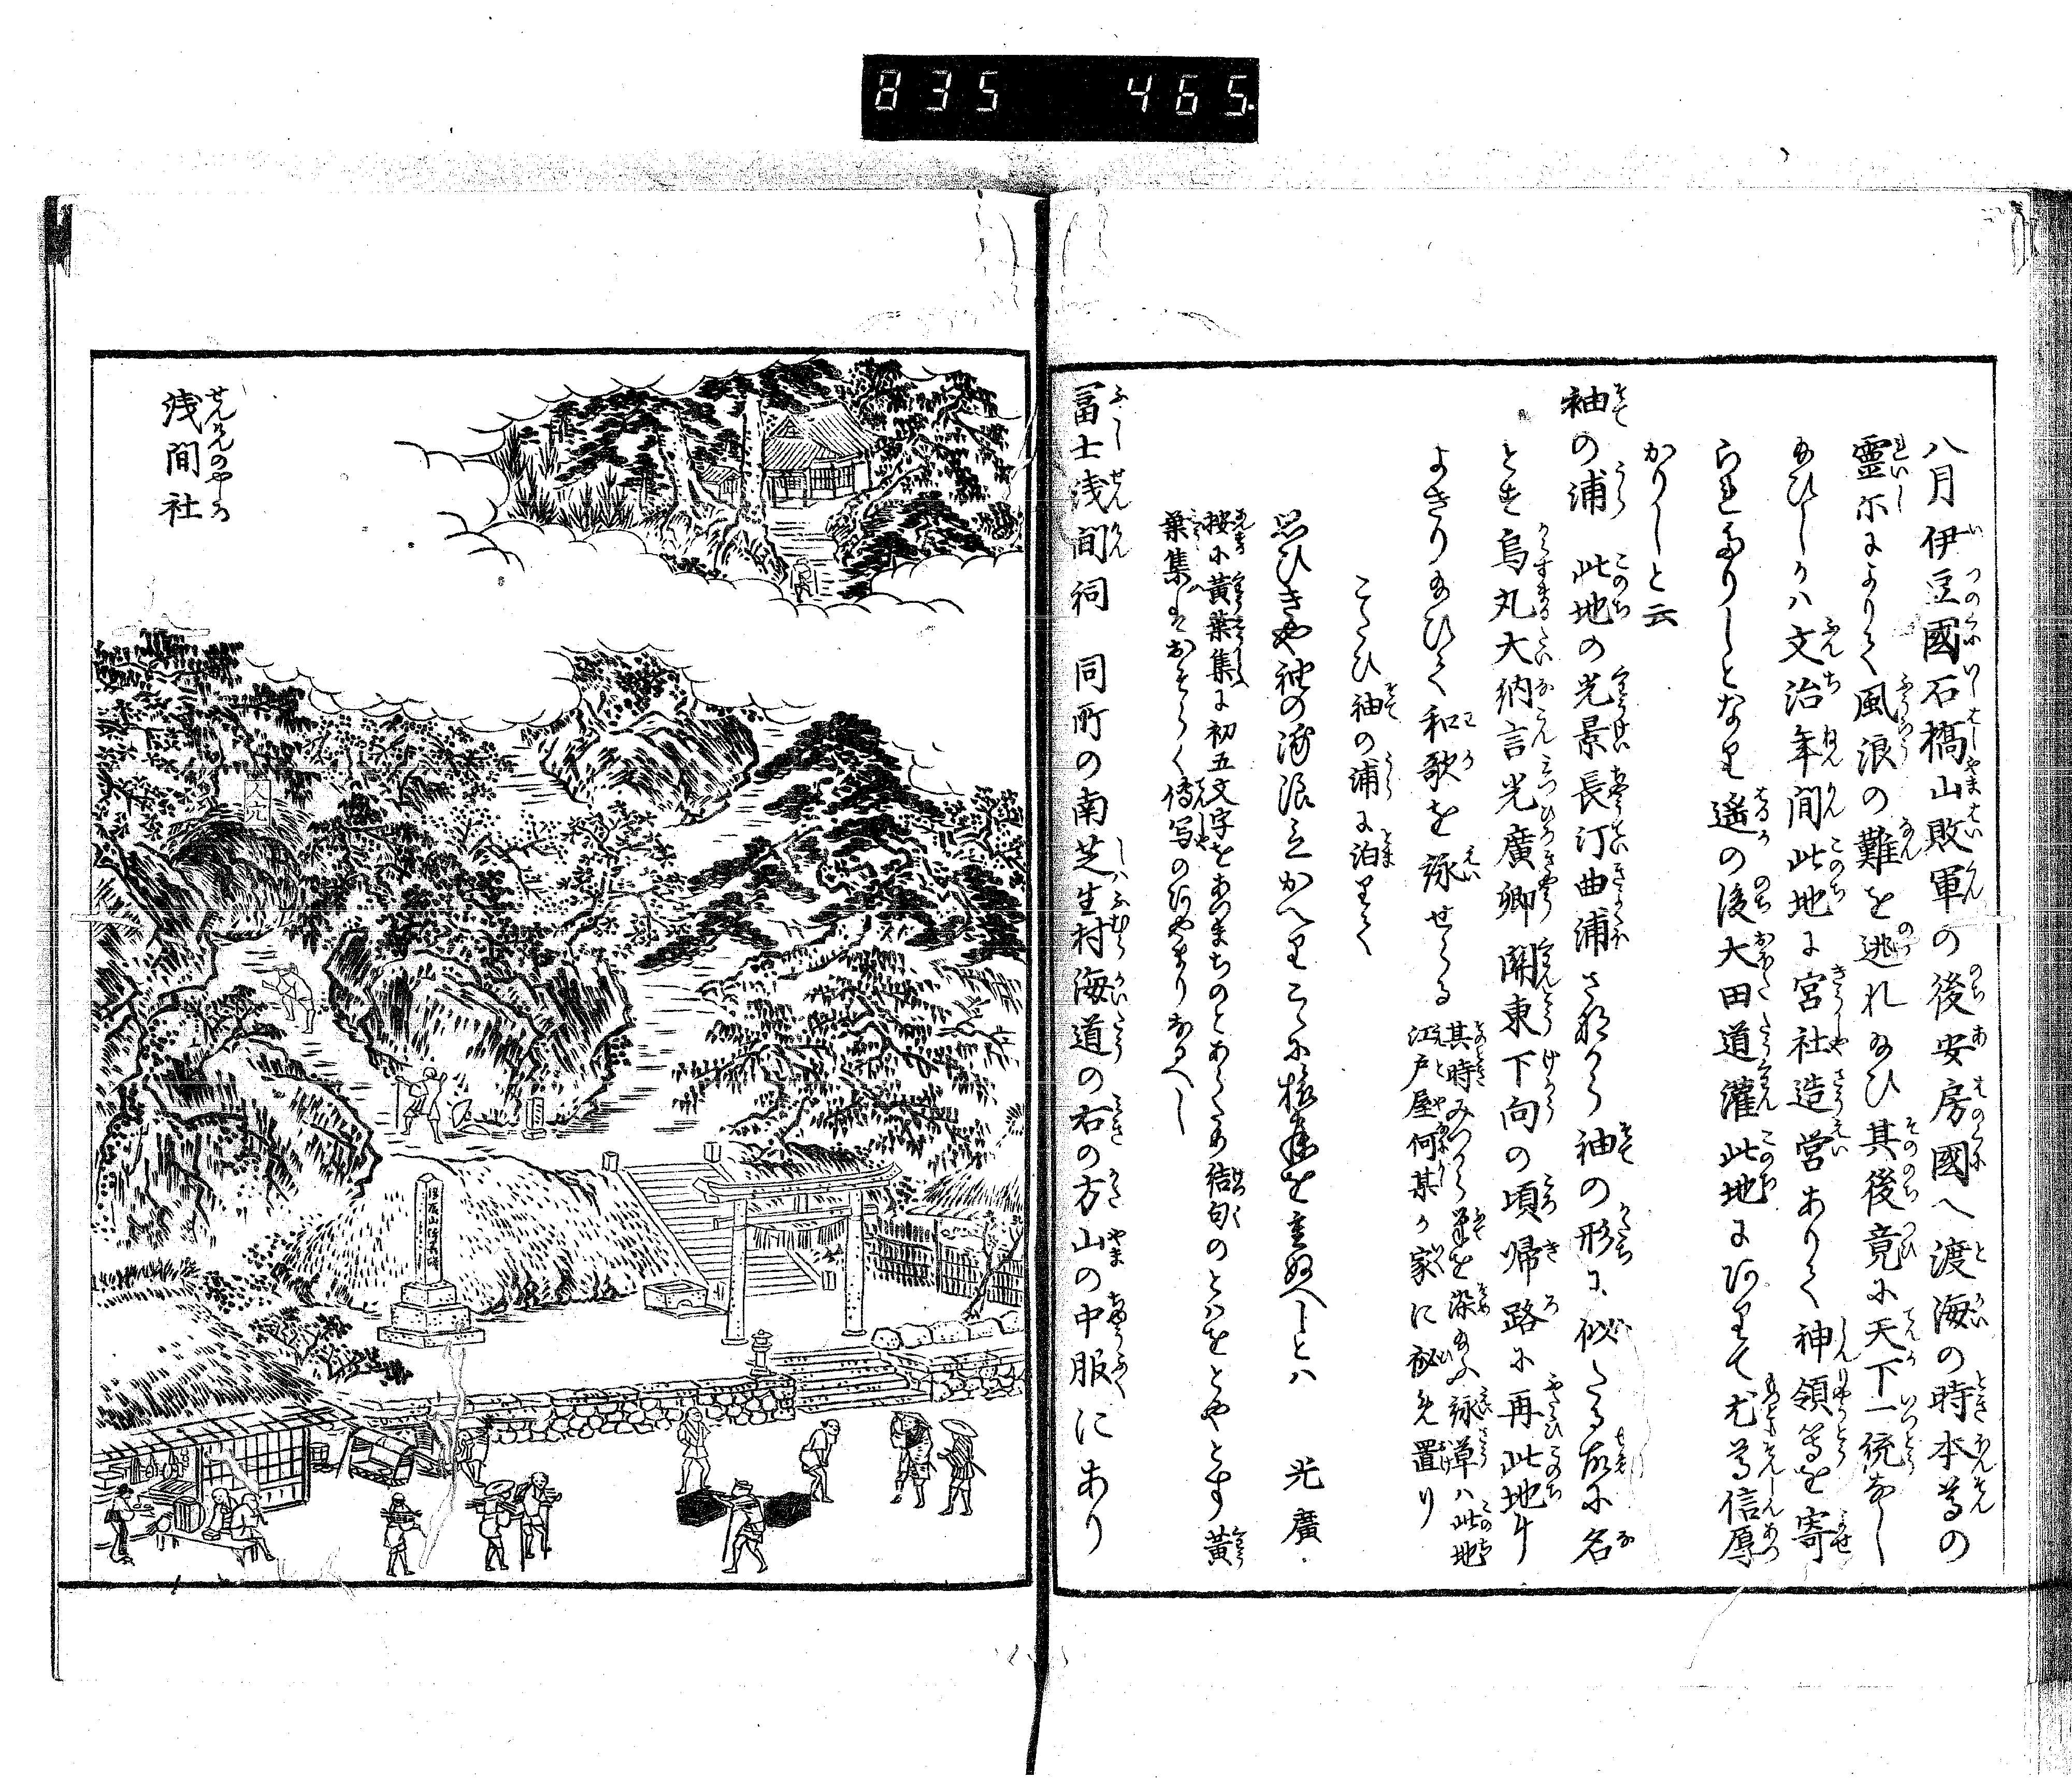 835 465
八月伊豆國石橋山敗軍の後安房國へ渡海の時本尊の
靈示によりて風浪の難を逃れ給ひ其後竟に天下一統なし
給ひしかハ文治年間此地に宮社造営ありて神領等を寄
られたりしとなり遙の後大田道灌此地にありて尤尊信厚
かりしと云
袖の浦 此地の光景長汀曲浦さなから袖の形に似たる故に名
とせり烏丸大納言光廣卿関東下向の頃帰路に再此地に
よきり給ひて和歌を詠せらる 其時みつから筆を染給ふ詠草ハ此地
江戸屋何某か家に秘め置り
こたひ袖の浦に泊りて
思ひきや袖の浦浪立かへりこゝに旅寝を重ぬへしとハ 光廣
按に黄葉集に初五文字をあつまちのとあらため結句のとハをとやとす黄
葉集はおそらく傳写のあやまりなるへし
冨士浅間祠 同所の南芝生村海道の右の方山の中腹にあり
浅間社
せんけんのやしろ
人穴